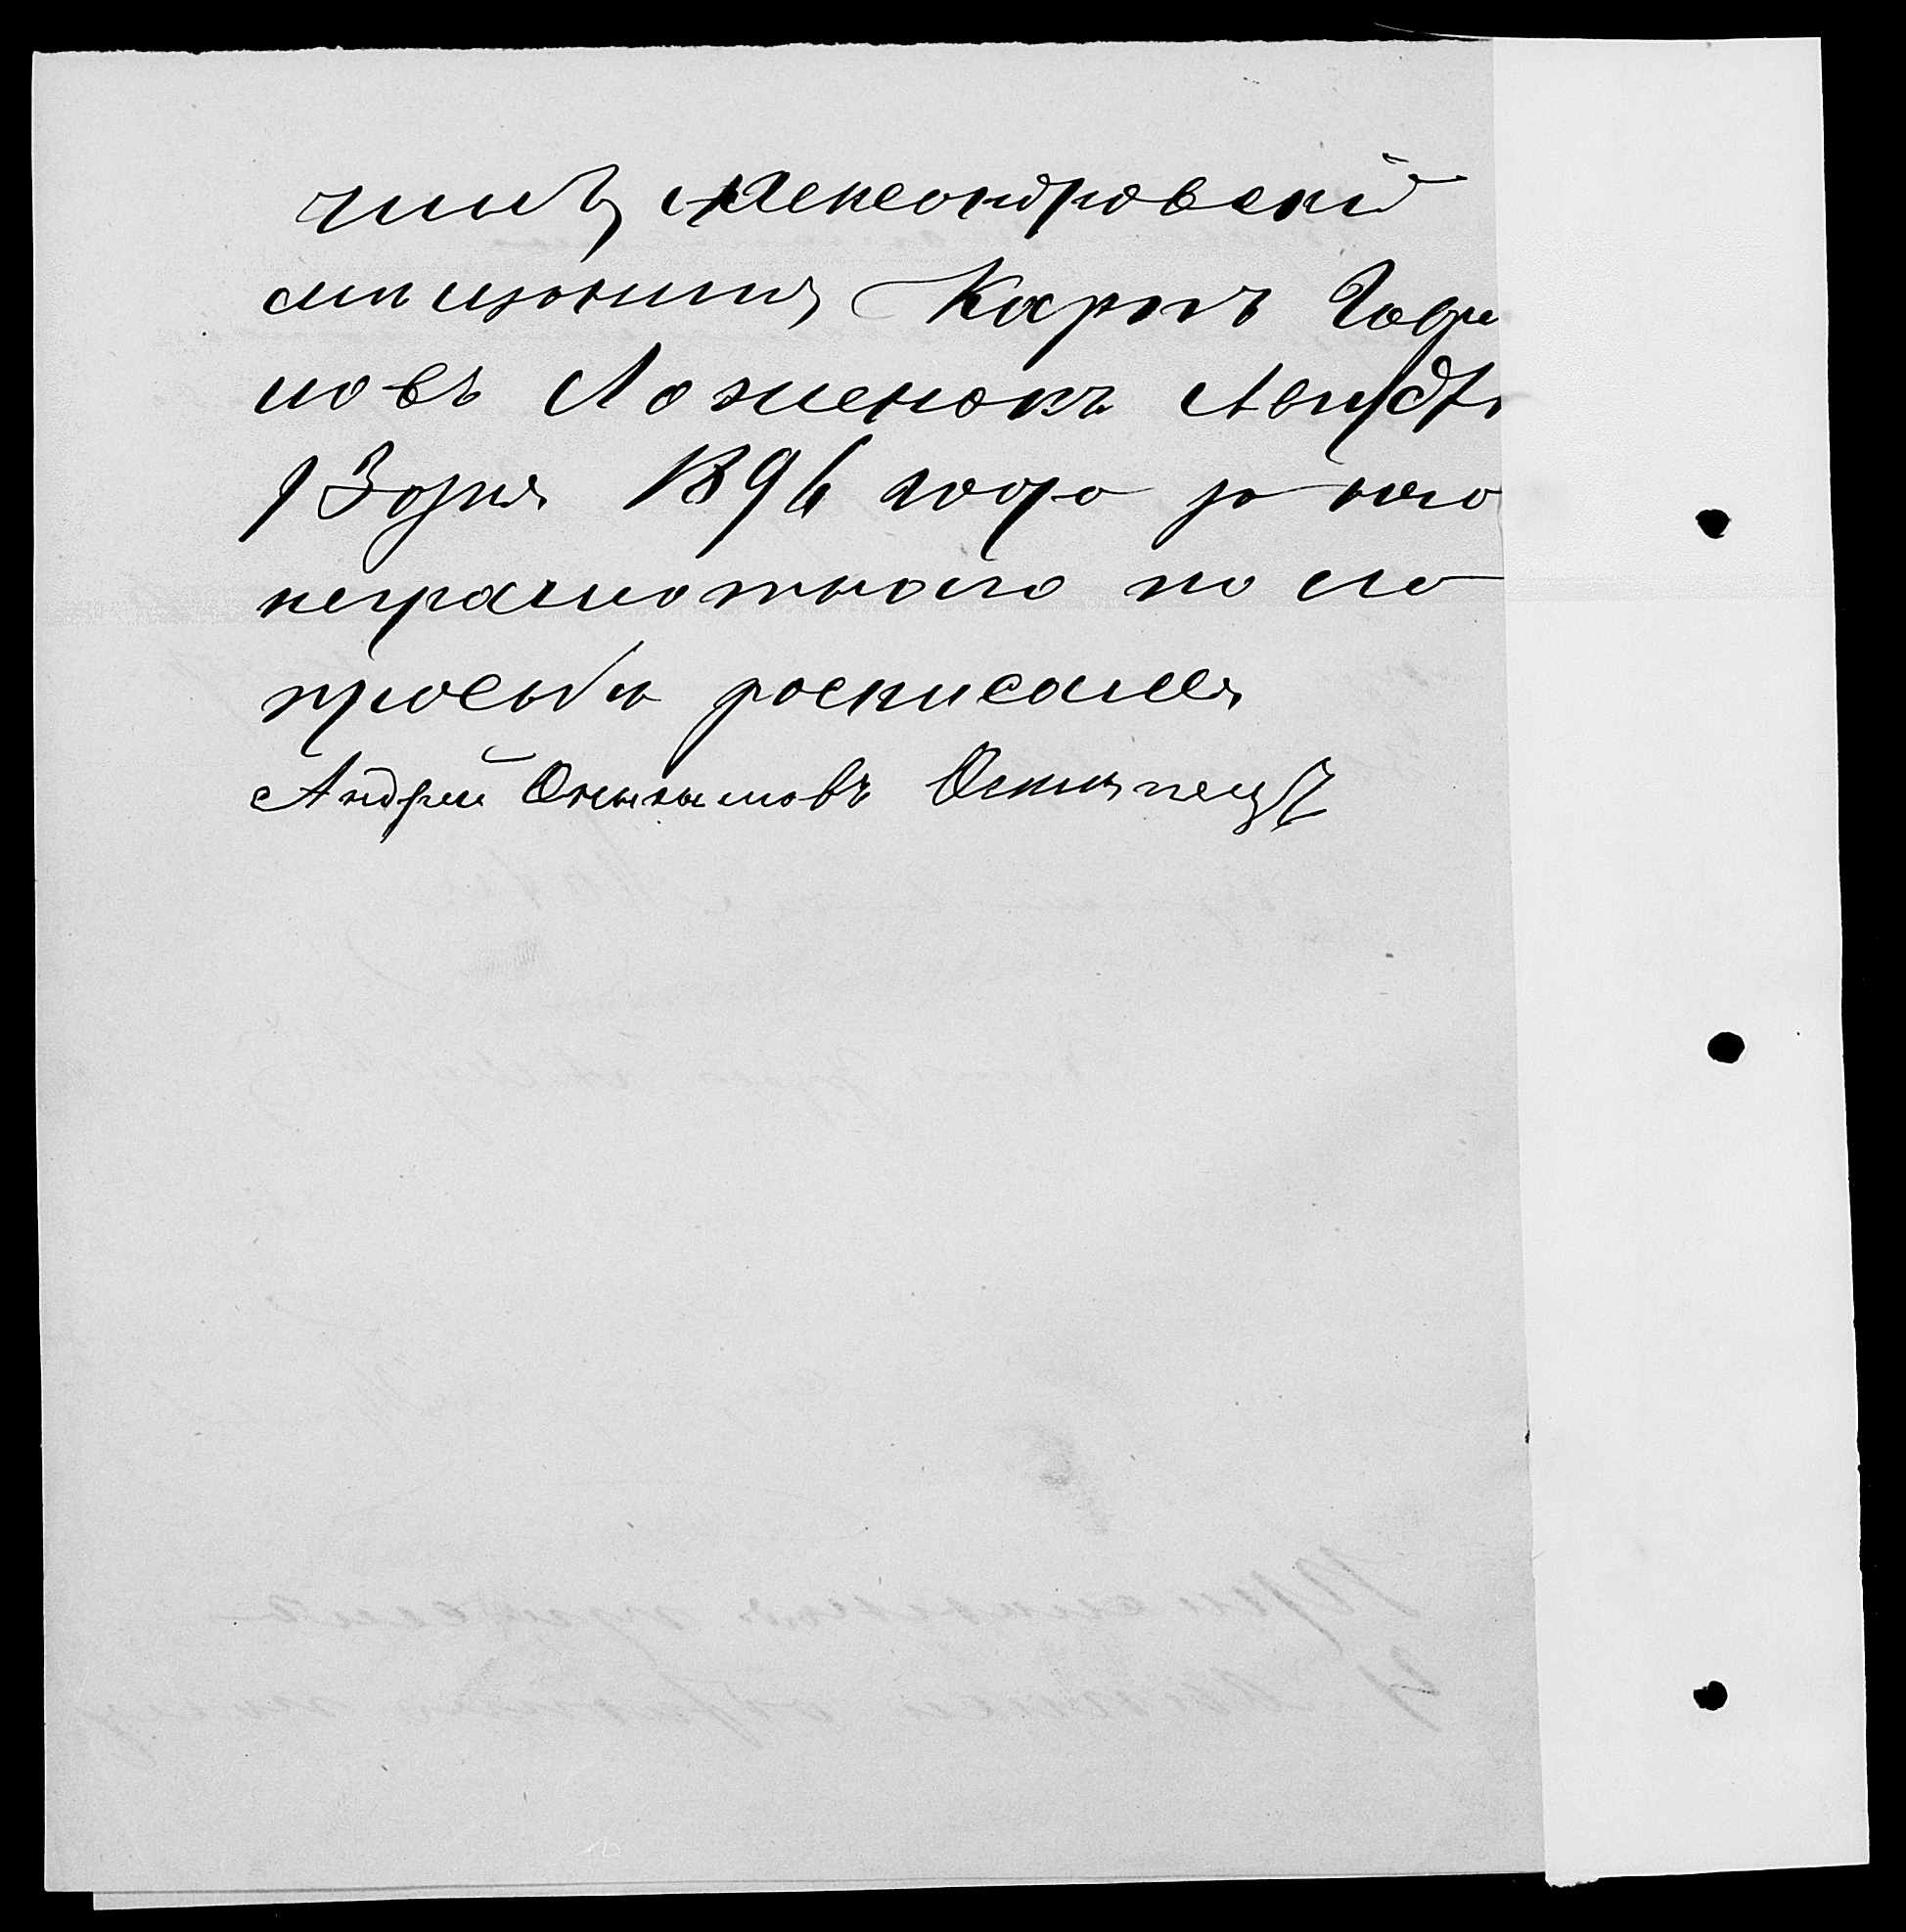 чилъ Александровскій
мѣщанинъ Карпъ Гаври
ловъ Ложенокъ Августа
13 дня 1896 года за него
неграмотнаго по его
просьбѣ росписался
Андрей